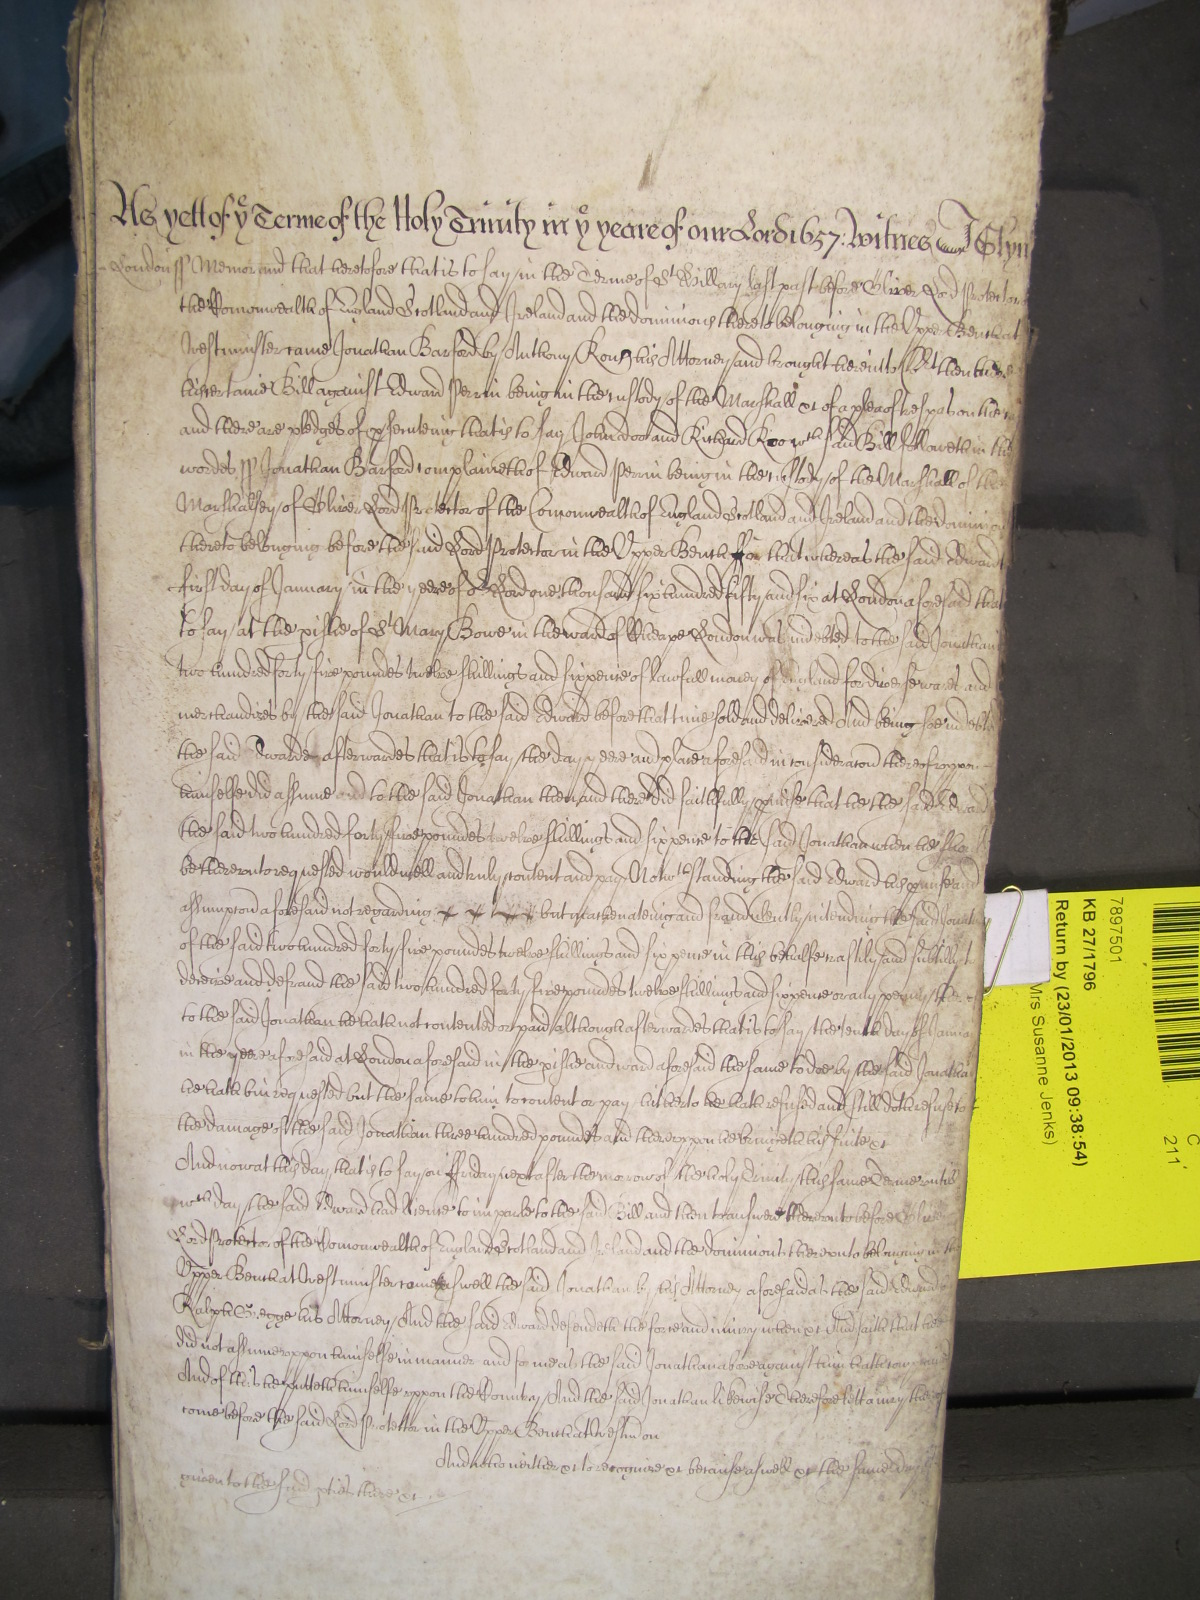 As yett of ye Terme of the Holy Trinity in ye yeare of our Lord 1657: Witnes J Glyn
London ss Memorand that heretofore that is to say in the Terme of St Hillary last past before Oliver Lord Protector
the Comonwealth of England Scotland and Ireland and the dominions thereto belonging in the Upper Bench at
Westminster came Jonathan Barford by Anthony his Attorney and brought here into Crt then
his certaine Bill against Edward Perrin being in the custody of the Marshall &c of a plea of trespas on the
and there are pledges of psecuteing that is to say John doo and Richard Roo wch said Bill followeth in the
wordes ss Jonathan Barford complaineth of Edward Perrin being in the custody of the Marshall of the
Marshalsey of Oliver Lord Protector of the Comonwealth of England Scotland and Ireland and the dominions
thereto belonging before the said Lord Protector in the Upper Bench ffor that whereas the said Edward
first day of January in the yeere of or Lord one thousand six hundred fifty and six at London aforesaid that
to say at the pishe of St Mary Bowe in the ward of Cheape London was indebted to the said Jonathan
two hundred forty five poundes twelve shillings and sixpence of lawfull money of England for divers wares and
merchandizes by the said Jonathan to the said Edward before that time sold and delivered And being soe indebted
the said Edward afterwardes that is to say the day yeere and place aforesaid in consideracon thereof uppon
himselfe did assume and to the said Jonathan then and there did faithfully pmise that he the said Edward
the said two hundred forty five poundes twelve shillings and sixpence to the said Jonathan when he should
be thereunto requested would well and truly content and pay Notwthstanding the said Edward his pmise and
assumpcon aforesaid not regarding but machinateing and fraudulently intending the said Jonathan
of the said two hundred forty five poundes twelve shillings and six pence in this behalfe craftily and subtilly to
deceive and defraud the said two hundred forty five poundes twelve shillings and sixpence or any penny
to the said Jonathan he hath not contented or paid although afterwardes that is to say the tenth day of January
in the yeere aforesaid at London aforesaid in the pishe and ward aforesaid the same to doe by the said Jonathan
he hath bin requested but the same to him to content or pay hitherto he hath refused and still doth refuse to
the damage of the said Jonathan three hundred poundes and thereuppon he bringeth his suite &c
And now at this day that is to say on ffriday next after the morrow of the Holy Trinity this same Terme untill
wch day the said Edward had licence to imparle to the said Bill and then to answere thereunto before Oliver
Lord Protector of the Comonwealth of England Scotland and Ireland and the dominions thereunto belonging in the
Upper Bench at Westminster come aswell the said Jonathan by his Attorney aforesaid as the said Edward by
Ralph his Attorney And the said Edward defendeth the force and iniury when &c And saith that he
did not assume uppon himselfe in manner and forme as the said Jonathan above against him hath
And of this he putteth himselfe uppon the Country And the said Jonathan likewise &c therefore lett a iury
come before the said Lord Protector in the Upper Bench at Westm on
And who neither &c to recognize &c because aswell &c the same day is
given to the said pties there &c
7897501
KB 27/1796
Return by (23/01/2013 09:38:54)
Mrs Susanne Jenks)
C
211